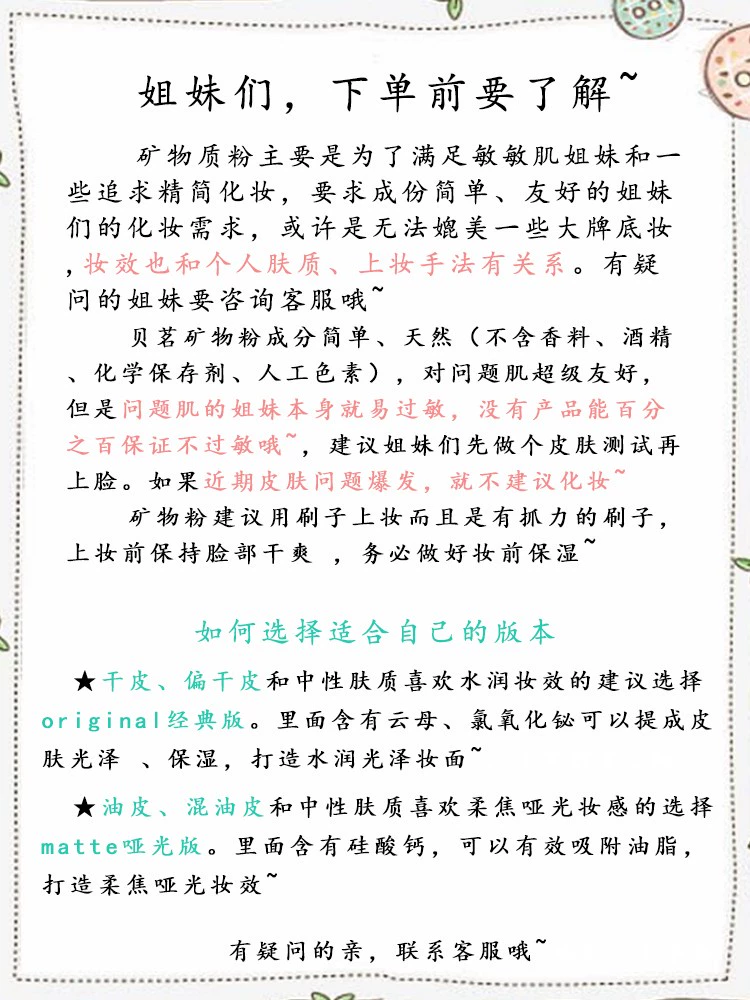 姐妹们，下单前要了解~
矿物质粉主要是为了满足敏敏肌姐妹和一
些追求精简化妆，要求成份简单、友好的姐妹
们的化妆需求，或许是无法媲美一些大牌底妆
，妆效也和个人肤质、上妆手法有关系。有疑
问的姐妹要咨询客服哦~
贝茗矿物粉成分简单、天然（不含香料、酒精
、化学保存剂、人工色素），对问题肌超级友好，
但是问题肌的姐妹本身就易过敏，没有产品能百分
之百保证不过敏哦~，建议姐妹们先做个皮肤测试再
上脸。如果近期皮肤问题爆发，就不建议化妆~
矿物粉建议用刷子上妆而且是有抓力的刷子，
上妆前保持脸部干爽 ，务必做好妆前保湿~
如何选择适合自己的版本
★干皮、偏干皮和中性肤质喜欢水润妆效的建议选择
original经典版。里面含有云母、氯氧化铋可以提成皮
肤光泽 、保湿，打造水润光泽妆面~
★油皮、混油皮和中性肤质喜欢柔焦哑光妆感的选择
matte哑光版。里面含有硅酸钙，可以有效吸附油脂，
打造柔焦哑光妆效~
有疑问的亲，联系客服哦~